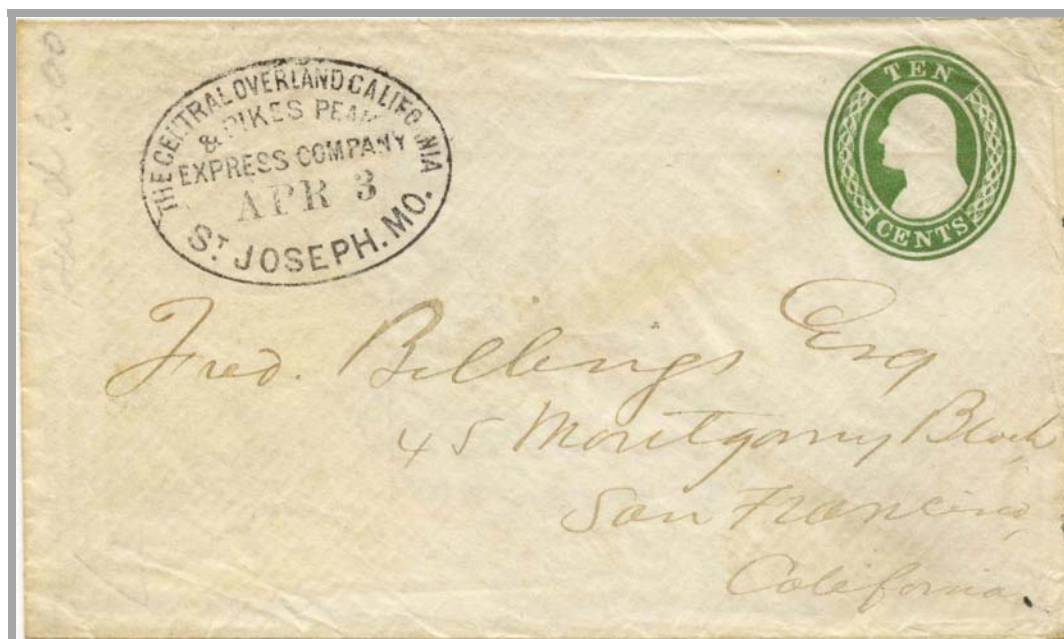 THE CENTRAL OVERLAND CALIFORNIA
& PIKES PEAK
EXPRESS COMPANY
APR 3
ST. JOSEPH. MO.
TEN
CENTS
Fred. Billings Esq
45 Montgomry Block
San Francisco,
California